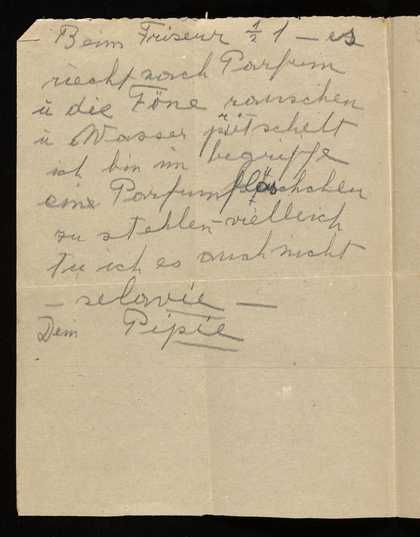 Beim Friseur ½ 1 – es
riecht nach Parfum
u die Föne rauschen
u Wasser pritschelt
ich bin im begriffe
ein Parfumfläschchen
zu stehlen – vielleich
tu ich es auch nicht
– selavie –
Dein Pipie